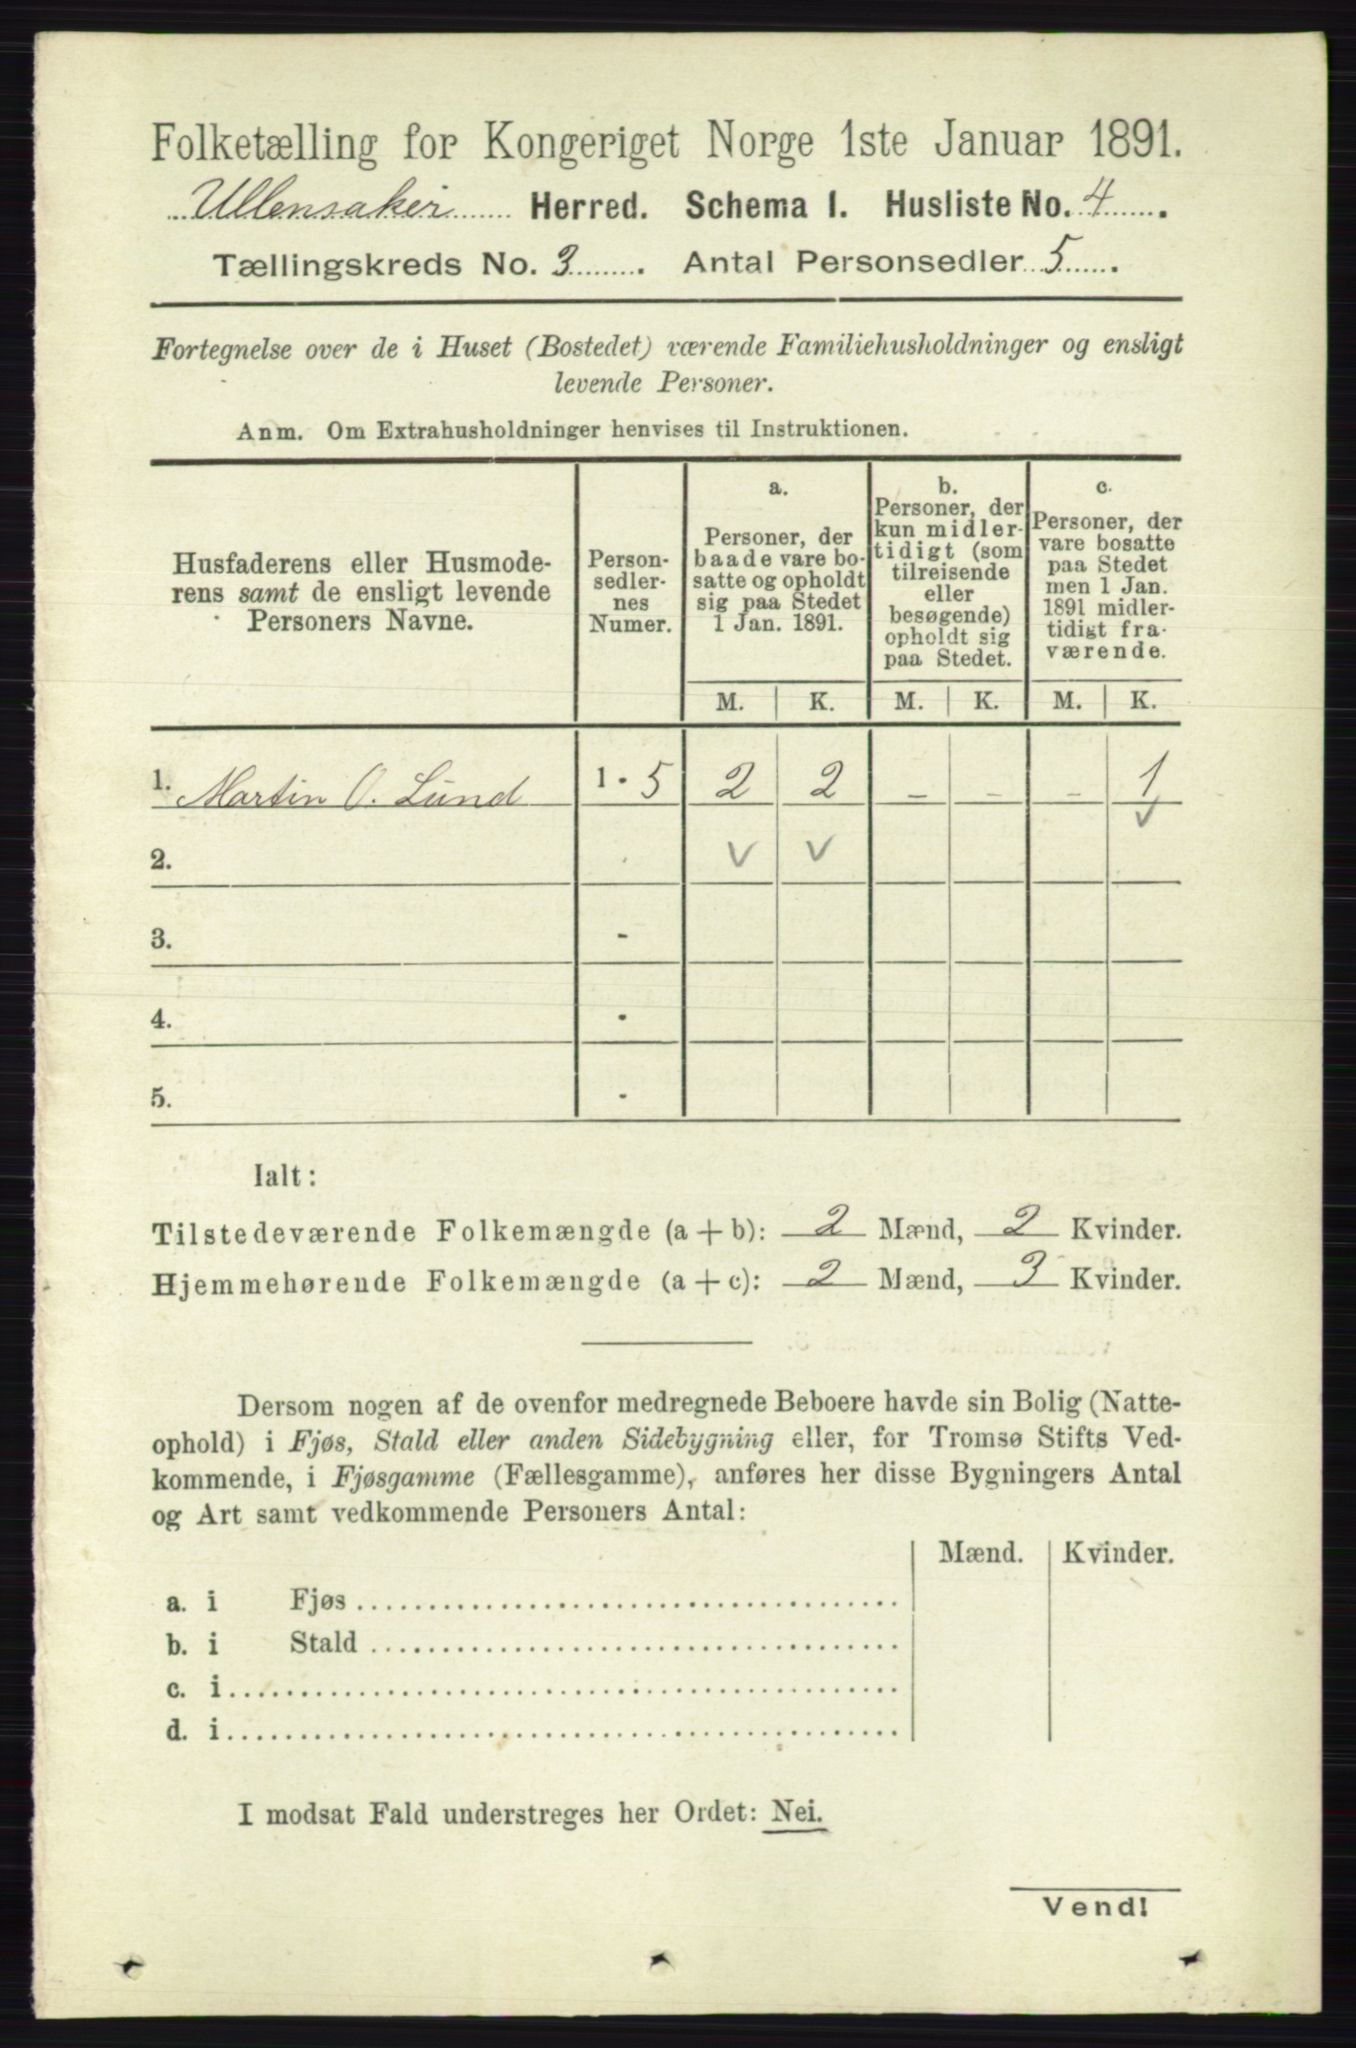 Folketælling for Kongeriget Norge 1ste Januar 1891.
Ullensaker Herred. Schema I. Husliste No. 4.
Tællingskreds No. 3. Antal Personsedler 5.
Fortegnelse over de i Huset (Bostedet) værende Familiehusholdninger og ensligt
levende Personer.
Anm. Om Extrahusholdninger henvises til Instruktionen.
Husfaderens eller Husmode-
rens samt de ensligt levende
Personers Navne.
Person-
sedler-
nes
Numer.
a.
Personer, der
baade vare bo-
satte og opholdt
sig paa Stedet
1 Jan. 1891.
b.
Personer, der
kun midler-
tidigt (som
tilreisende
eller
besøgende)
opholdt sig
paa Stedet.
c.
Personer, der
vare bosatte
paa Stedet
men 1 Jan.
1891 midler-
tidigt fra-
værende.
M. K. M. K. M. K.
1. Martin O. Lund 1 - 5 2 2 – – – 1
v
2. v v
3. -
4. -
5. -
Ialt:
Tilstedeværende Folkemængde (a + b): 2 Mænd, 2 Kvinder.
Hjemmehørende Folkemængde (a + c): 2 Mænd, 3 Kvinder.
Dersom nogen af de ovenfor medregnede Beboere havde sin Bolig (Natte-
ophold) i Fjøs, Stald eller anden Sidebygning eller, for Tromsø Stifts Ved-
kommende, i Fjøsgamme (Fællesgamme), anføres her disse Bygningers Antal
og Art samt vedkommende Personers Antal:
Mænd. Kvinder.
a. i Fjøs
b. i Stald
c. i
d. i
I modsat Fald understreges her Ordet: Nei.
Vend!